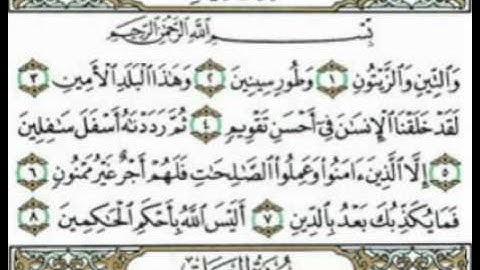 بِسْمِ اللَّهِ الرَّحْمَٰنِ الرَّحِيمِ
وَالتِّينِ وَالزَّيْتُونِ ١ وَطُورِ سِينِينَ ٢ وَهَٰذَا الْبَلَدِ الْأَمِينِ ٣
لَقَدْ خَلَقْنَا الْإِنسَٰنَ فِي أَحْسَنِ تَقْوِيمٍ ٤ ثُمَّ رَدَدْنَٰهُ أَسْفَلَ سَٰفِلِينَ
٥ إِلَّا الَّذِينَ ءَامَنُوا وَعَمِلُوا الصَّٰلِحَٰتِ فَلَهُمْ أَجْرٌ غَيْرُ مَمْنُونٍ ٦
فَمَا يُكَذِّبُكَ بَعْدُ بِالدِّينِ ٧ أَلَيْسَ اللَّهُ بِأَحْكَمِ الْحَٰكِمِينَ ٨